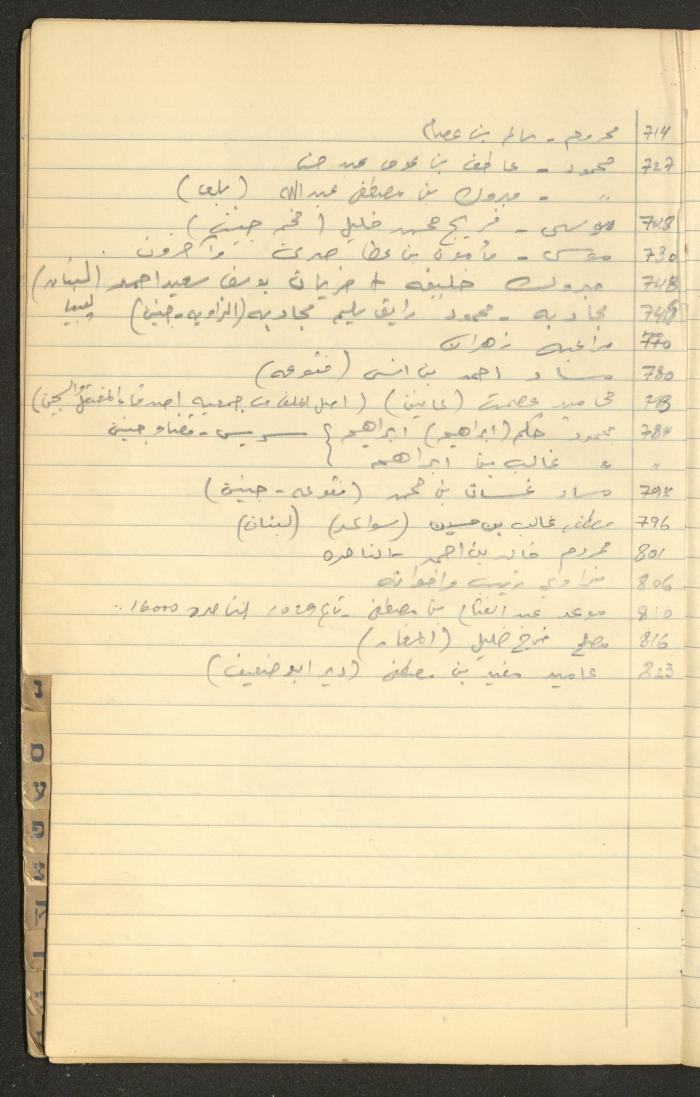 714 محروم - سالم بن عصام
727 محمود - عاطف بن عوض عبد حنا
" - مبروك بن مصطفى عبد الله (يلعف)
728 موسى - فريج محمد خليل (مخيم جنين)
730 موسى - مأمون بن عطا صبري وآخرون
748 مبروك خليفه + خزيمان يوسف سعيد احمد (لبنان)
749 مجادبه - محمود رايق سليم مجادبه (الزاويه - جنين) ليبيا
770 مراعبه زهران
780 مساد احمد بن انس (فقوعه)
783 محاميد عصمت (عانين) (اصل الملف من جمعيه اصدقاء المعتقل والسجين)
784 محمود حكم (ابراهيم) ابراهيم } سريس - قضاء جنين
" " غالب بن ابراهيم
794 مساد غسان بن محمد (فقوعه - جنين)
796 مصطفى غالب بن حسين (سواعد) (لبنان)
801 محروم خالد بن احمد - الناصره
806 زينب واخواته
810 موعد عبد الفتاح بن مصطفى - الناصره 16000
816 مصلح فرج خليل (المغار)
823 عاميد مفيد بن مصطفى (دير ابو ضعيف)
נ
ס
ע
פ
צ
ק
ר